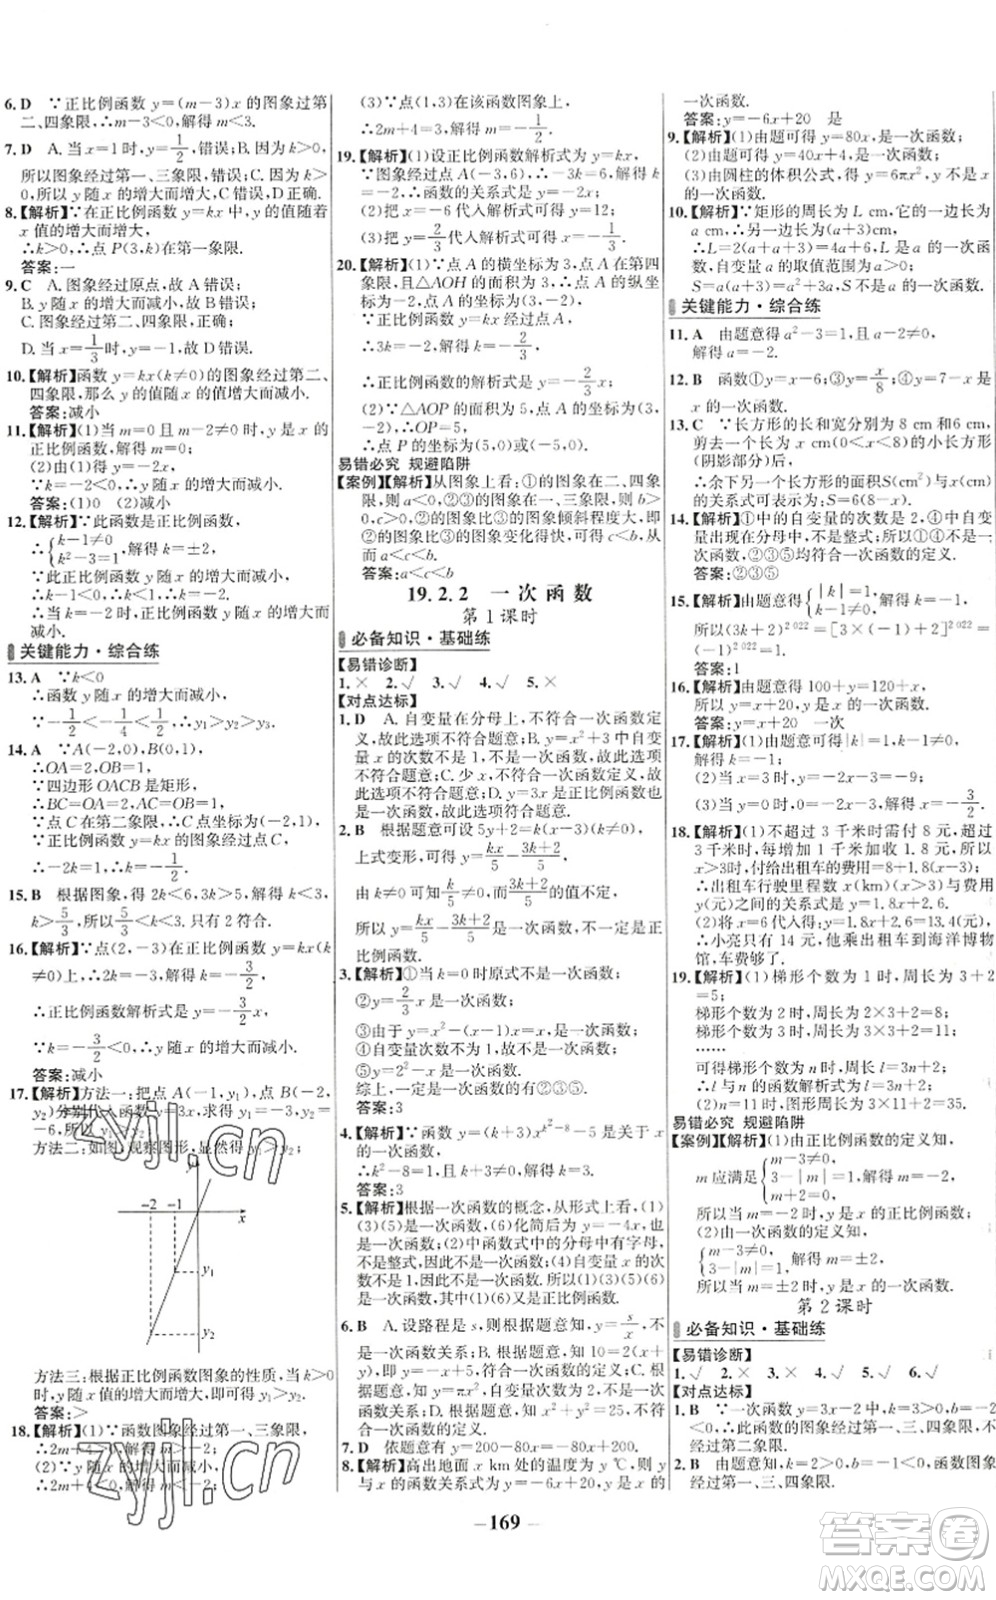 6. D ∵正比例函数 y=(m-3)x 的图象过第
二、四象限,∴m-3<0,解得 m<3.
7. D A. 当 x=1 时,y=1/2,错误;B. 因为 k>0,
所以图象经过第一、三象限,错误;C. 因为 k>
0,所以 y 随 x 的增大而增大,C 错误;D. 正确.
8.【解析】∵在正比例函数 y=kx 中,y 的值随着
x 值的增大而增大,
∴k>0,∴点 P(3,k)在第一象限.
答案:一
9. C A. 图象经过原点,故 A 错误;
B. y 随 x 的增大而减小,故 B 错误;
C. 图象经过第二、四象限,正确;
D. 当 x=1/3 时,y=-1,故 D 错误.
10.【解析】函数 y=kx(k≠0)的图象经过第二、
四象限,那么 y 的值随 x 的值增大而减小.
答案:减小
11.【解析】(1)当 m=0 且 m-2≠0 时,y 是 x 的
正比例函数,解得 m=0;
(2)由(1)得 y=-2x,
∵k=-2<0,∴y 随 x 的增大而减小.
答案:(1)0 (2)减小
12.【解析】∵此函数是正比例函数,
∴{k-1≠0 k²-3=1,解得 k=±2,
∵此函数经过第二、四象限,
∴k-1<0,∴k=-2,
∴当 k=-2 时,正比例函数 y 随 x 的增大而
减小.
关键能力·综合练
13. A ∵k<0
∴函数 y 随 x 的增大而减小,
∵-1/2<-1/4<1/2,∴y₁>y₂>y₃.
14. A ∵A(-2,0),B(0,1),
∴OA=2,OB=1,
∵四边形 OACB 是矩形,
∴BC=OA=2,AC=OB=1,
∵点 C 在第二象限,∴点 C(-2,1),
∵正比例函数 y=kx 的图象经过点 C,
∴-2k=1,∴k=-1/2.
15. B 根据图象,得 2k<6,3k>5,解得 k<3,
k>5/3,所以 5/3<k<3. 只有 2 符合.
16.【解析】∵点(2,-3)在正比例函数 y=kx(k
≠0)上,∴2k=-3,解得 k=-3/2,
∴正比例函数解析式是 y=-3/2x,
∵k=-3/2<0,∴y 随 x 的增大而减小.
答案:减小
17.【解析】方法一:把点 A(-1,y₁),点 B(-2,
y₂)分别代入函数 y=3x,求得 y₁=-3,y₂=
-6,所以 y₁>y₂;
方法二:如图,观察图形,显然 y₁>y₂;
y
-2 -1 x
y₁
y₂
方法三:根据正比例函数图象的性质,当 k>0
时,y 随 x 的增大而增大,即可得 y₁>y₂.
答案:>
18.【解析】(1)∵函数图象经过第一、三象限,
∴2m+4>0,∴m>-2;
(2)∵y 随 x 的增大而减小,
∴2m+4<0,∴m<-2;
(3)∵点(1,3)在该函数图象上,
∴2m+4=3,解得 m=-1/2.
19.【解析】(1)设正比例函数解析式为 y=kx,
∵图象经过点(-3,6),∴-3k=6,k=-2,
∴函数的关系式是 y=-2x;
(2)把 x=-6 代入解析式可得 y=12;
(3)把 y=2/3 代入解析式可得 x=-1/3.
20.【解析】(1)∵点 A 的横坐标为 3,点 A 在第四
象限,且△AOH 的面积为 3,∴点 A 的纵坐
标为-2,∴点 A 的坐标为(3,-2),
∵正比例函数 y=kx 经过点 A,
∴3k=-2,解得 k=-2/3,
∴正比例函数的解析式是 y=-2/3x;
(2)∵△AOP 的面积为 5,点 A 的坐标为(3,
-2),∴OP=5,
∴点 P 的坐标为(5,0)或(-5,0).
易错必究 规避陷阱
【案例】【解析】从图象上看:①的图象在二、四象
限,则 a<0,②③的图象在一、三象限,则 b>0,
c>0;②的图象比③的图象倾斜程度大,也就是
②的图象比③的图象变化得快,可得出 c<b,所
以 a<c<b.
答案:a<c<b
19.2.2 一次函数
第 1 课时
必备知识·基础练
【易错诊断】
1. × 2. √ 3. √ 4. √ 5. ×
【对点达标】
1. D A. 自变量在分母上,不符合一次函数定
义,故此选项不符合题意;B. y=x²+3 中自变
量的次数不是 1,不是一次函数,故此选项不
符合题意;C. 少 x,不是一次函数,故此选项
不符合题意;D. y=3x 是正比例函数,也是一
次函数,故此选项符合题意.
2. B 根据题意可设 5y+2=k(x-3),
上式变形,可得 y=kx/5-(3k+2)/5,
由 k≠0 可知 kx/5≠0,而 (3k+2)/5 的值不定,
∴y=kx/5-(3k+2)/5 是一次函数,但不一定是正
比例函数.
3.【解析】①当 k=0 时原式不是一次函数;
②y=2/3x 是一次函数;
③由于 y=x²-(x-1)x=x,是一次函数;
④自变量次数不为 1,不是一次函数;
⑤y=2²-x 是一次函数.
综上,一定是一次函数的有②③⑤.
答案:3
4.【解析】∵函数 y=(k+3)x^(k²-8)-5 是关于 x
的一次函数,
∴k²-8=1,且 k+3≠0,解得 k=3.
答案:3
5.【解析】根据一次函数的概念,从形式上看,(1)
(3)(5)是一次函数,(6)化简后为 y=-4x,也
是一次函数;(2)中函数式中的分母中有字母,
不是整式,不是一次函数;(4)自变量 x 的指
数是 2,不是一次函数. 所以(1)(3)(5)(6)是
一次函数,其中(1)(6)又是正比例函数.
6. B A. 设路程是 s,则根据题意知,y=s/x,不是
一次函数关系;B. 根据题意,知 10=2(x+
y),即 y=-x+5,符合一次函数关系;C. 根据
题意,知 y=πx²,自变量次数不为 1,不是一次
函数关系;D. 根据题意,知 x²+y²=25,不是一
次函数关系.
7. D 依题意有 y=200-80x=-80x+200.
8.【解析】高出地面 x km 处的温度为 y ℃,则 y
与 x 的函数关系式为 y=-6x+20,y 是 x 的
一次函数.
答案:y=-6x+20 是
9.【解析】(1)由题可得 y=80x,是一次函数.
(2)由题可得 y=20x+2 000,是一次函数.
(3)由圆柱的体积公式,得 y=6πx²,y 不是 x
的一次函数.
10.【解析】∵矩形的周长为 L cm,它的一边长为
a cm,另一边长为(a+3)cm,
∴L=2(a+a+3)=4a+6,L 是 a 的一次函
数,自变量 a 的取值范围是 a>0;
S=a(a+3)=a²+3a,S 不是 a 的一次函数.
关键能力·综合练
11. A 由题意得 a²-3=1,且 a-2≠0,
解得 a=-2.
12. B 函数①y=x-6;③y=x/8;④y=7-x 是
一次函数.
13. C ∵长方形的长和宽分别为 8 cm 和 6 cm,
剪去一个长为 x cm(0<x<8)的小长方形
(阴影部分)后,
∴余下另一个长方形的面积 S(cm²)与 x(cm)
的关系式可表示为:S=6(8-x).
14.【解析】①中的自变量的次数是 2,④中的自变
量出现在分母中,不是整式;所以①④不是一
次函数;②③⑤均符合一次函数的定义.
答案:②③⑤
15.【解析】由题意得{|k|=1 k-1≠0,解得 k=-1,
所以(3k+2)^2 022=[3×(-1)+2]^2 022=
(-1)^2 022=1.
答案:1
16.【解析】由题意得 100+y=120+x,
所以 y=x+20,y 是 x 的一次函数.
答案:y=x+20 一次
17.【解析】(1)由题意可得|k|=1,且 k-1≠0,
解得 k=-1;
(2)当 x=3 时,y=-2x-3=-9;
(3)当 y=0 时,0=-2x-3,解得 x=-3/2.
18.【解析】(1)不超过 3 千米时需付 8 元,超过 3
千米时,每增加 1 千米加收 1.8 元,所以当
x>3 时,付给出租车的费用=8+1.8(x-3);
∴出租车行驶里程数 x(km)(x>3)与费用
y(元)之间的关系式是 y=1.8x+2.6.
(2)将 x=6 代入得:y=1.8x+2.6=13.4(元),
∴小亮只有 14 元,他乘出租车到海洋博物
馆,车费够了.
19.【解析】(1)梯形个数为 1 时,周长为 3+2
=5;
梯形个数为 2 时,周长为 2×3+2=8;
梯形个数为 3 时,周长为 3×3+2=11;
……
可得梯形个数为 n 时,周长 l=3n+2;
∴l 与 n 的函数解析式为 l=3n+2.
(2)n=11 时,图形周长为 3×11+2=35.
易错必究 规避陷阱
【案例】【解析】(1)由正比例函数的定义知,
m 应满足{m-3≠0, 3-|m|=1, m+2=0, 解得 m=-2.
所以当 m=-2 时,y 是 x 的正比例函数.
(2)由一次函数的定义可知,
{m-3≠0, 3-|m|=1,解得 m=±2,
所以当 m=±2 时,y 是 x 的一次函数.
第 2 课时
必备知识·基础练
【易错诊断】
1. √ 2. × 3. × 4. √ 5. √ 6. √
【对点达标】
1. B ∵一次函数 y=3x-2 中,k=3>0,b=-2
<0,∴此一次函数的图象经过第一、三、四象限,不
经过第二象限.
2. B ∵一次函数 k=2>0,b=-1<0,∴函数图象
经过第一、三、四象限.
— 169 —
zyjl.cn
zyjl.cn
答案圈
MXQE.COM